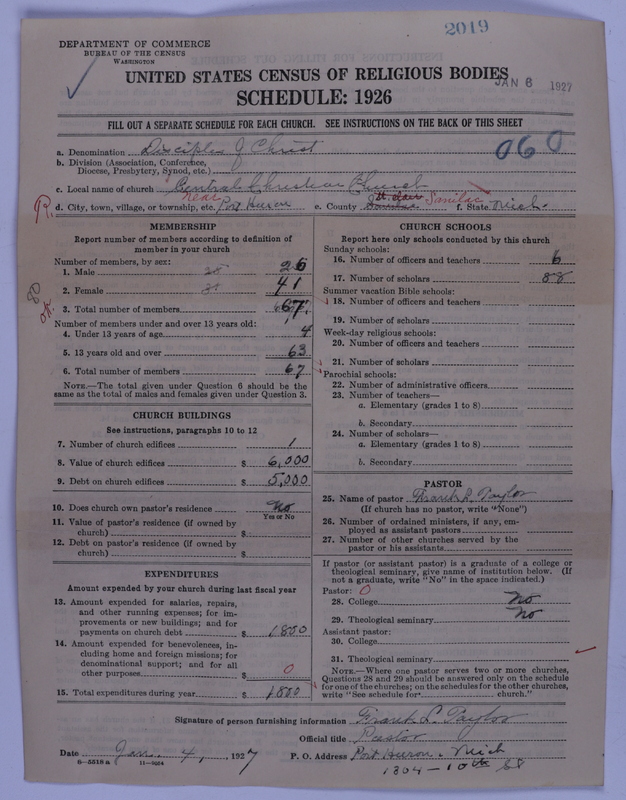 2019
DEPARTMENT OF COMMERCE
BUREAU OF THE CENSUS
WASHINGTON
UNITED STATES CENSUS OF RELIGIOUS BODIES
JAN 6 1927
SCHEDULE: 1926
FILL OUT A SEPARATE SCHEDULE FOR EACH CHURCH. SEE INSTRUCTIONS ON THE BACK OF THIS SHEET
060
a. Denomination Disciples of Christ
b. Division (Association, Conference, Diocese, Presbytery, Synod, etc.)
c. Local name of church Central Christian Church
R. d. City, town, village, or township, etc. near Port Huron e. County St. Clair Sanilac f. State Mich.
MEMBERSHIP
Report number of members according to definition of member in your church
Number of members, by sex:
1. Male 26
2. Female 41
3. Total number of members 67
Number of members under and over 13 years old:
4. Under 13 years of age 4
5. 13 years old and over 63
6. Total number of members 67
NOTE.—The total given under Question 6 should be the same as the total of males and females given under Question 3.
CHURCH BUILDINGS
See instructions, paragraphs 10 to 12
7. Number of church edifices 1
8. Value of church edifices $ 6,000
9. Debt on church edifices $ 5,000
10. Does church own pastor's residence No
Yes or No
11. Value of pastor's residence (if owned by church) $
12. Debt on pastor's residence (if owned by church) $
EXPENDITURES
Amount expended by your church during last fiscal year
13. Amount expended for salaries, repairs, and other running expenses; for improvements or new buildings; and for payments on church debt $ 1800
14. Amount expended for benevolences, including home and foreign missions; for denominational support; and for all other purposes $ 0
15. Total expenditures during year $ 1800
CHURCH SCHOOLS
Report here only schools conducted by this church
Sunday schools:
16. Number of officers and teachers 6
17. Number of scholars 88
Summer vacation Bible schools:
18. Number of officers and teachers
19. Number of scholars
Week-day religious schools:
20. Number of officers and teachers
21. Number of scholars
Parochial schools:
22. Number of administrative officers
23. Number of teachers—
a. Elementary (grades 1 to 8)
b. Secondary
24. Number of scholars—
a. Elementary (grades 1 to 8)
b. Secondary
PASTOR
25. Name of pastor Frank L. Taylor
(If church has no pastor, write "None")
26. Number of ordained ministers, if any, employed as assistant pastors
27. Number of other churches served by the pastor or his assistants
If pastor (or assistant pastor) is a graduate of a college or theological seminary, give name of institution below. (If not a graduate, write "No" in the space indicated.)
Pastor: 0
28. College No
29. Theological seminary No
Assistant pastor:
30. College
31. Theological seminary
NOTE.—Where one pastor serves two or more churches, Questions 28 and 29 should be answered only on the schedule for one of the churches; on the schedules for the other churches, write "See schedule for church."
Signature of person furnishing information Frank L. Taylor
Official title Pastor
Date Jan. 4, 1927 P. O. Address Port Huron, Mich
6—5518 a 11—9064 1304 - 10th St